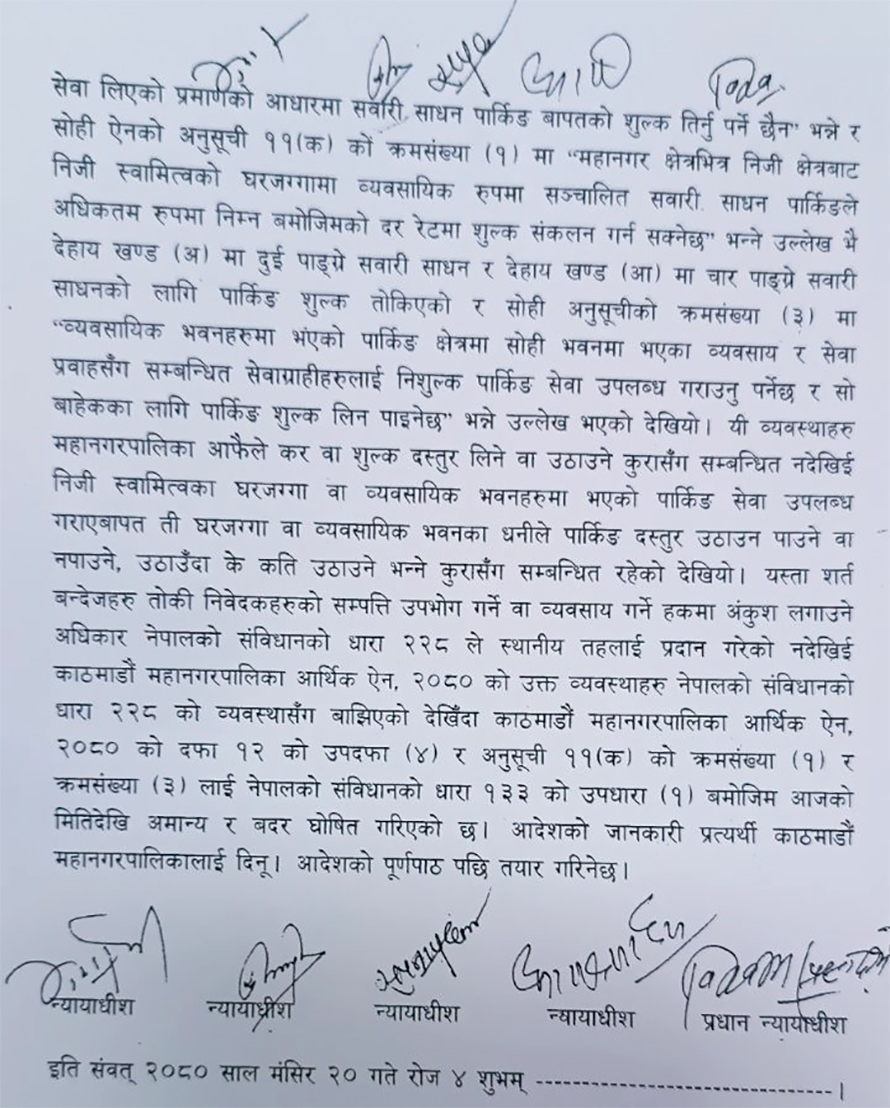 सेवा लिएको प्रमाणको आधारमा सवारी साधन पार्किङ बापतको शुल्क तिर्नु पर्ने छैन" भन्ने र
सोही ऐनको अनुसूची ११(क) को क्रमसंख्या (१) मा "महानगर क्षेत्रभित्र निजी क्षेत्रबाट
निजी स्वामित्वको घरजग्गामा व्यवसायिक रुपमा सञ्चालित सवारी साधन पार्किङले
अधिकतम रुपमा निम्न बमोजिमको दर रेटमा शुल्क संकलन गर्न सक्नेछ" भन्ने उल्लेख भै
देहाय खण्ड (अ) मा दुई पाङ्ग्रे सवारी साधन र देहाय खण्ड (आ) मा चार पाङ्ग्रे सवारी
साधनको लागि पार्किङ शुल्क तोकिएको र सोही अनुसूचीको क्रमसंख्या (३) मा
"व्यवसायिक भवनहरुमा भएको पार्किङ क्षेत्रमा सोही भवनमा भएका व्यवसाय र सेवा
प्रवाहसँग सम्बन्धित सेवाग्राहीहरुलाई निशुल्क पार्किङ सेवा उपलब्ध गराउनु पर्नेछ र सो
बाहेकका लागि पार्किङ शुल्क लिन पाइनेछ" भन्ने उल्लेख भएको देखियो। यी व्यवस्थाहरु
महानगरपालिका आफैले कर वा शुल्क दस्तुर लिने वा उठाउने कुरासँग सम्बन्धित नदेखिई
निजी स्वामित्वका घरजग्गा वा व्यवसायिक भवनहरुमा भएको पार्किङ सेवा उपलब्ध
गराएबापत ती घरजग्गा वा व्यवसायिक भवनका धनीले पार्किङ दस्तुर उठाउन पाउने वा
नपाउने, उठाउँदा के कति उठाउने भन्ने कुरासँग सम्बन्धित रहेको देखियो। यस्ता शर्त
बन्देजहरु तोकी निवेदकहरुको सम्पत्ति उपभोग गर्ने वा व्यवसाय गर्ने हकमा अंकुश लगाउने
अधिकार नेपालको संविधानको धारा २२८ ले स्थानीय तहलाई प्रदान गरेको नदेखिई
काठमाडौं महानगरपालिका आर्थिक ऐन, २०८० को उक्त व्यवस्थाहरु नेपालको संविधानको
धारा २२८ को व्यवस्थासँग बाझिएको देखिँदा काठमाडौं महानगरपालिका आर्थिक ऐन,
२०८० को दफा १२ को उपदफा (४) र अनुसूची ११(क) को क्रमसंख्या (१) र
क्रमसंख्या (३) लाई नेपालको संविधानको धारा १३३ को उपधारा (१) बमोजिम आजको
मितिदेखि अमान्य र बदर घोषित गरिएको छ। आदेशको जानकारी प्रत्यर्थी काठमाडौं
महानगरपालिकालाई दिनू। आदेशको पूर्णपाठ पछि तयार गरिनेछ।
न्यायाधीश न्यायाधीश न्यायाधीश न्यायाधीश प्रधान न्यायाधीश
इति संवत् २०८० साल मंसिर २० गते रोज ४ शुभम् ------------------------------।